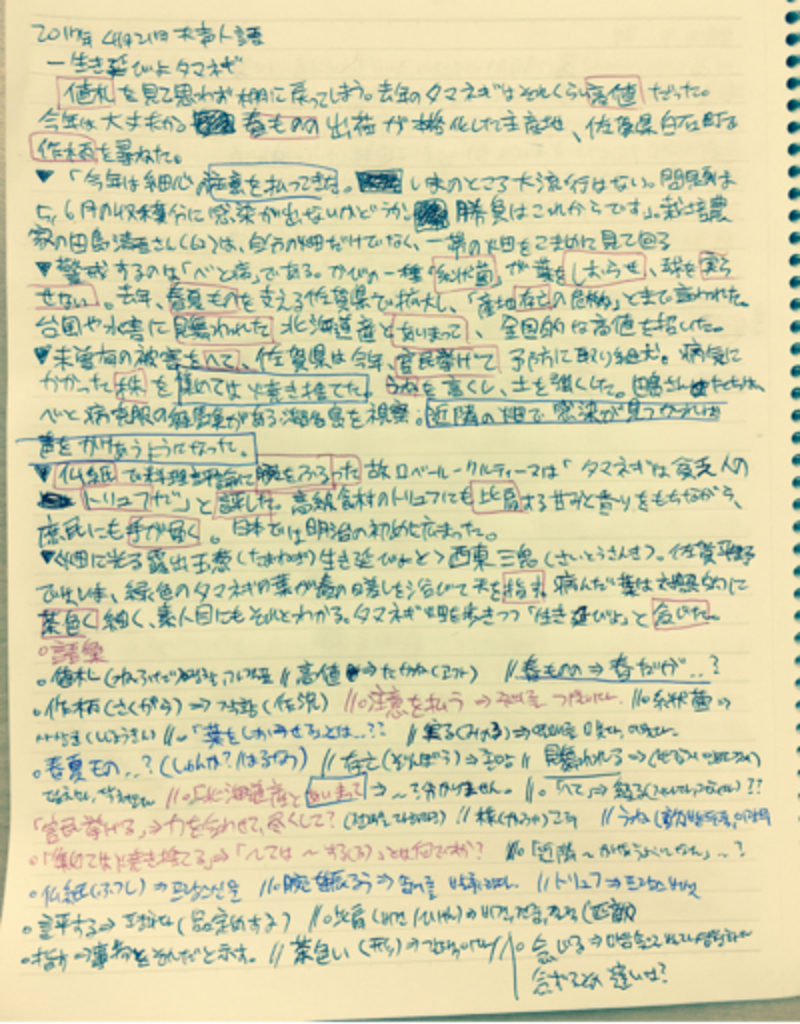 2017年 4月21日 天声人語
ー生き延びよタマネギ
値札を見て思わず棚に戻ってしまう。去年のタマネギはそれくらい高値だった。
今年は大丈夫か 春ものの出荷が本格化した主産地、佐賀県白石町で
作柄を尋ねた。
▼「今年は細心の注意を払ってきた。 いまのところ大流行はない。問題は
5,6月の収穫分に感染が出ないかどうか 勝負はこれからです」。栽培農
家の田島さん は、自分の畑だけでなく、一帯の畑をこまめに見て回る
▼警戒するのは「べと病」である。かびの一種「糸状菌」が葉をしおらせ、球を実ら
せない。去年、春夏ものを支える佐賀県で拡大し、「産地存亡の危機」とまで言われた。
台風や水害に見舞われた北海道産とあいまって、全国的な高値を招いた。
▼未曽有の被害をへて、佐賀県は今年、官民挙げて予防に取り組む。病気に
かかった株を集めては焼き捨てた。うねを高くし、土を強くした。田島さんたちは、
べと病克服の経験がある淡路島を視察。近隣の畑で感染が見つかれば
声をかけあうようになった。
▼仏紙で料理評論に腕をふるった故ロベール・クルティーヌは「タマネギは貧乏人の
トリュフだ」と評した。高級食材のトリュフにも比肩する甘みと香りをもちながら、
庶民にも手が届く。日本では明治の初めに広まった。
▼〈畑に光る露出玉葱(たまねぎ)生き延びよと〉西東三鬼(さいとうさんき)。佐賀平野
ではいま、緑色のタマネギの葉が春の日差しを浴びて天を指す。病んだ葉は対照的に
茶色く細く、素人目にもそれとわかる。タマネギ畑を歩きつつ「生き延びよ」と念じた。
○語彙
○値札(ねふだ) // 高値 ⇒ たかね // 春ものの ⇒ 春だけが..?
○作柄(さくがら) ⇒ 작황(作況) // ○注意を払う ⇒ 주의를 // ○糸状菌 ⇒
// ○「葉をしおらせる」とは..?? // 実る(みのる) ⇒
○春夏もの..? (しゅんか?/はるなつ) // 存亡(そんぼう) ⇒ 존망 // 見舞われる ⇒
// ○「北海道産とあいまって ⇒ ~?分かりません。 // ○「へて」⇒ ??
「官民挙げる」⇒力を合わせて、尽くして? // 株(かぶ) // うね
○「集めては焼き捨てる」⇒「~ては~する」とは何ですか? // ○「近隣~かけあうようになった」..?
○仏紙(ふつし) ⇒ 프랑스신문 // ○腕を振るう ⇒ // トリュフ ⇒
○評する ⇒ 평하다 (品定めする) // ○比肩 (비견/ひけん) ⇒
○指す ⇒ 事物をそれだと示す。 // 茶色い (形) ⇒ // ○念じる ⇒
念ずるとの違いは?